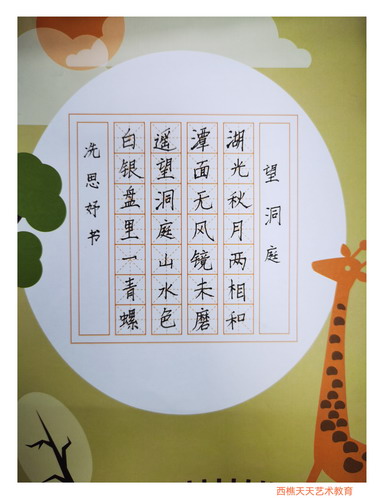 望洞庭
湖光秋月两相和
潭面无风镜未磨
遥望洞庭山水色
白银盘里一青螺
冼思妤书
西樵天天艺术教育